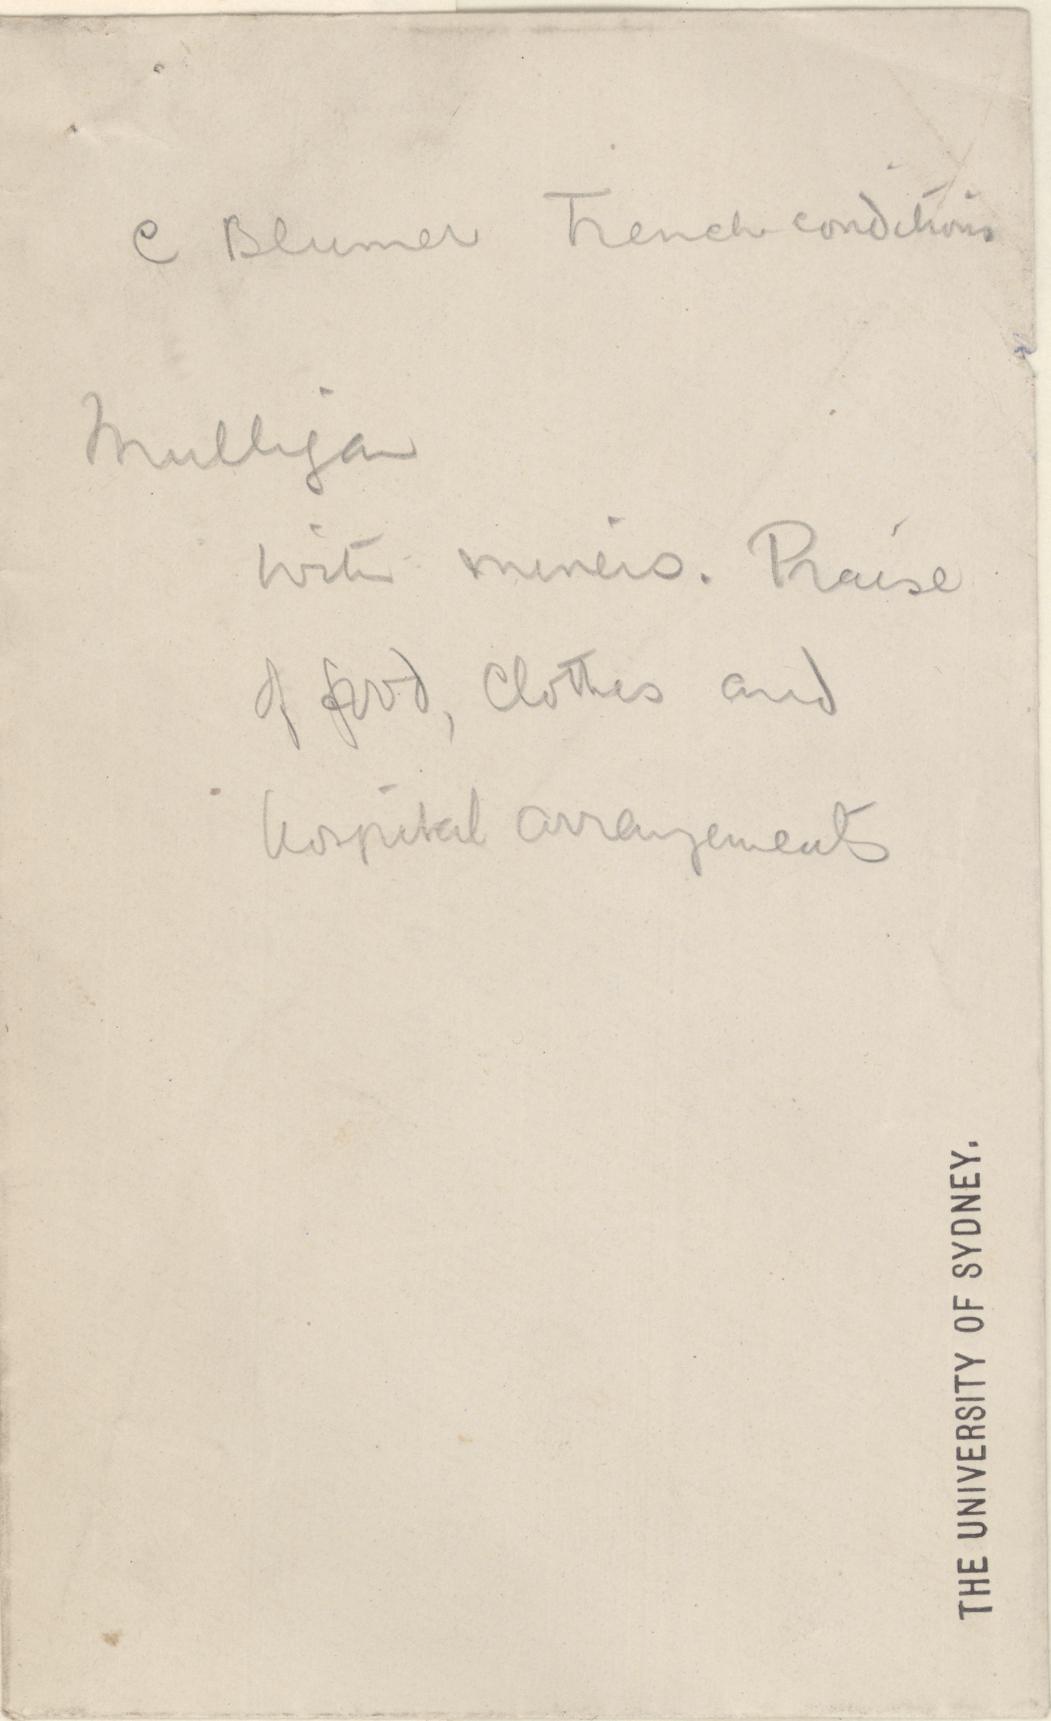 C Blumer Trench conditions
Mulligan
with miners. Praise
of food, clothes and
hospital arrangements
THE UNIVERSITY OF SYDNEY.